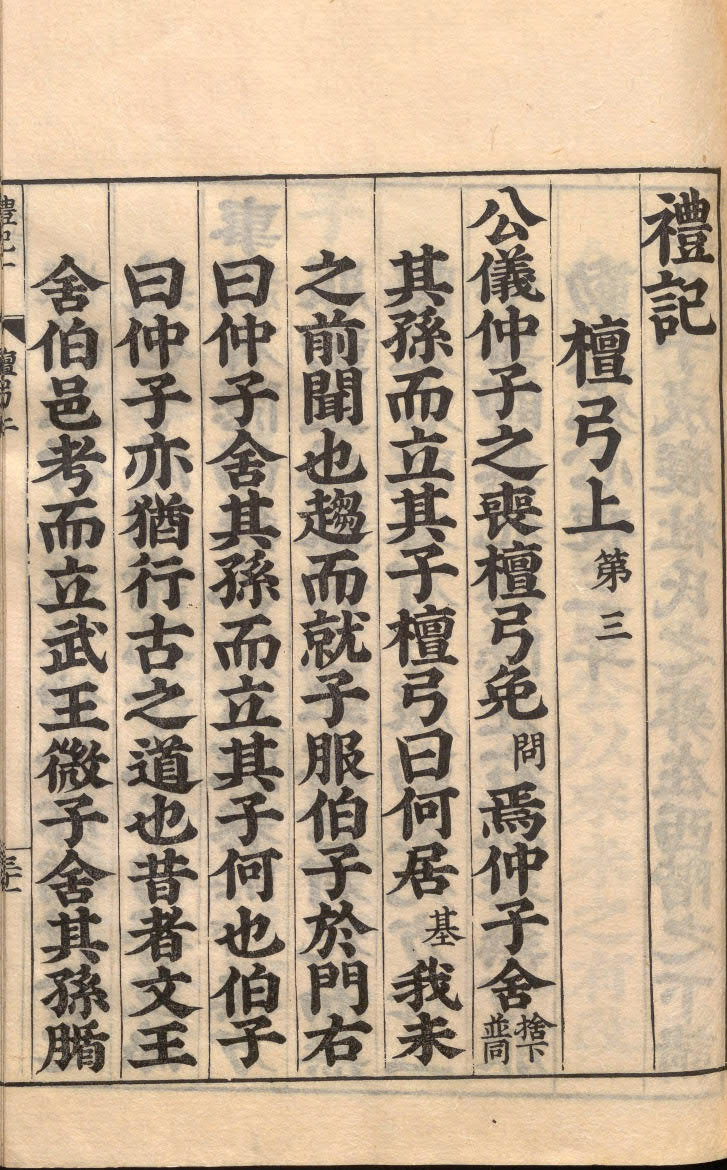 禮記
檀弓上 第三
公儀仲子之喪檀弓免問焉仲子舍捨下並同
其孫而立其子檀弓曰何居基我未
之前聞也趨而就子服伯子於門右
曰仲子舍其孫而立其子何也伯子
曰仲子亦猶行古之道也昔者文王
舍伯邑考而立武王微子舍其孫腯